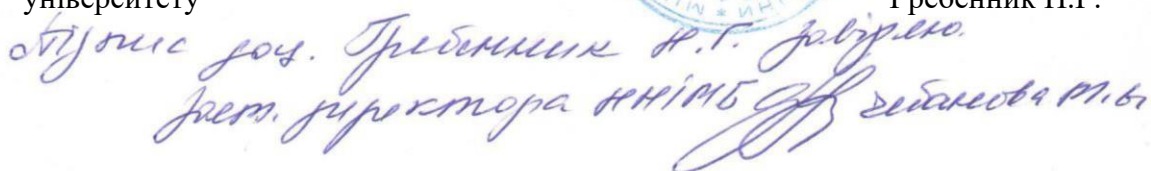 університету Гребенник Н.Г.
Підпис доц. Гребенник Н.Г. завіряю.
Заст. директора ННІМБ Чебанова